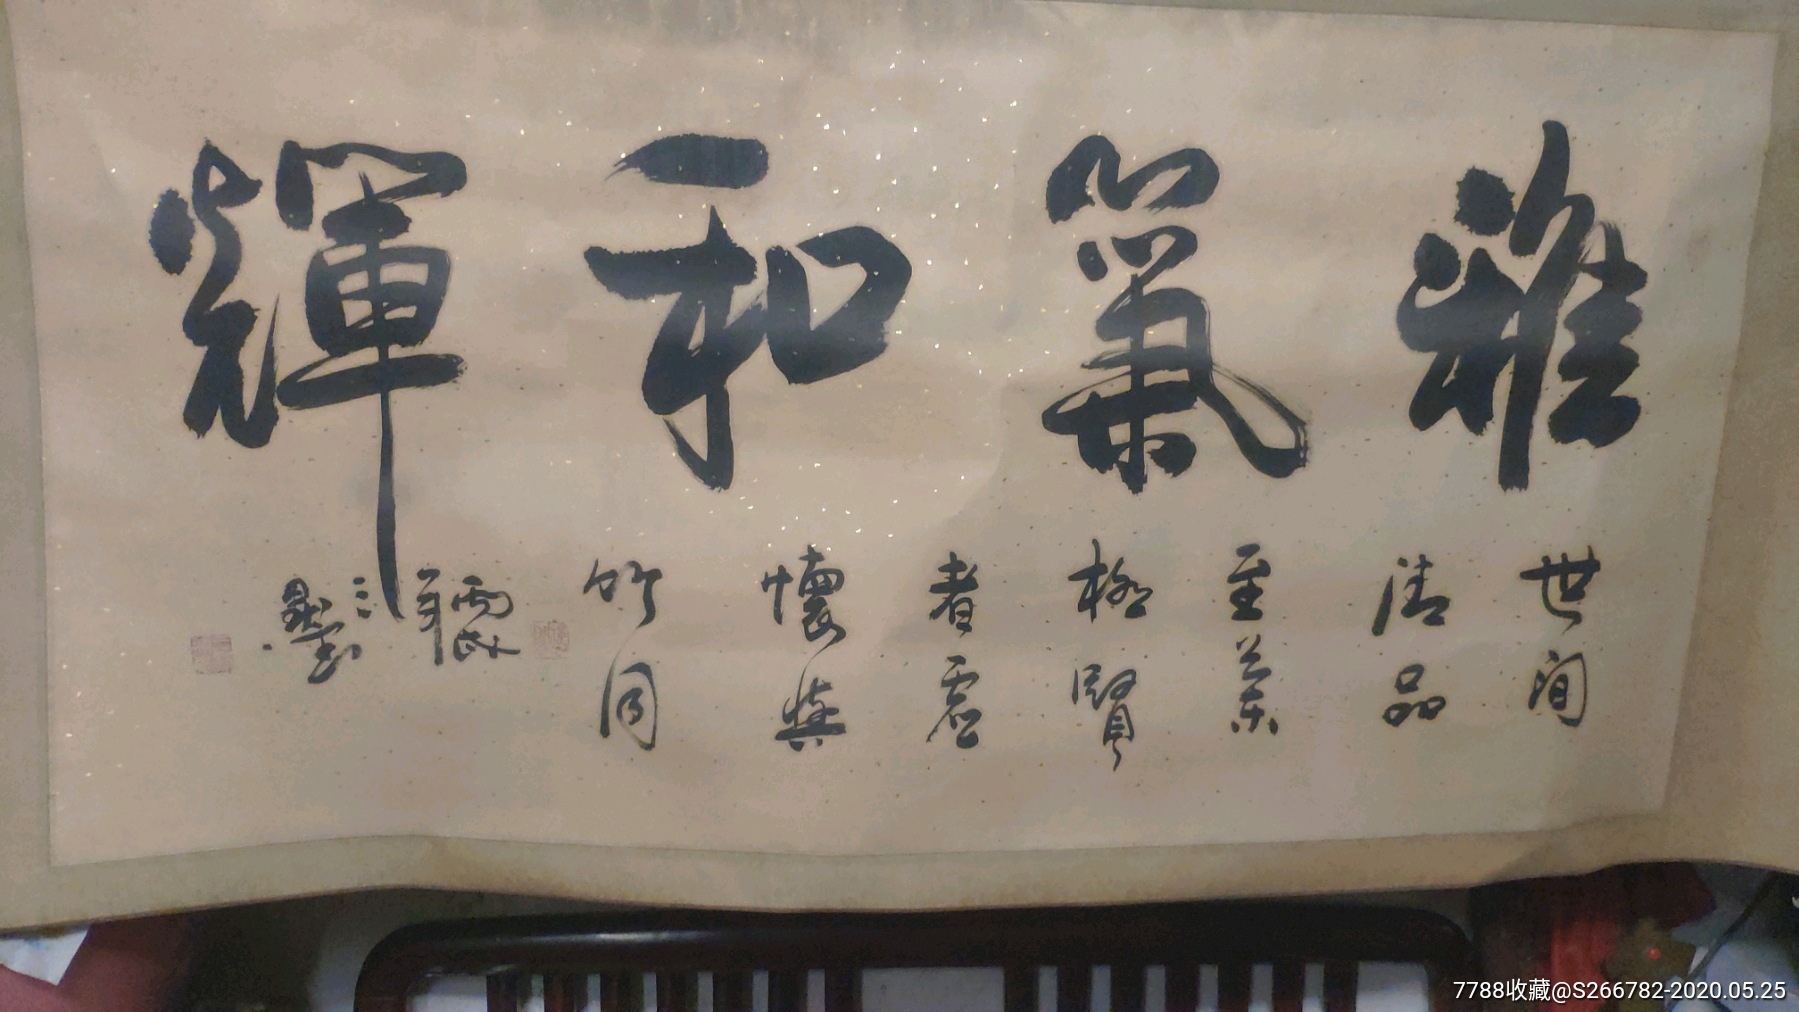 雅氣和輝
世间
清品
至蘭
極賢
者虛
懷與
竹同
7788收藏@S266782-2020.05.25